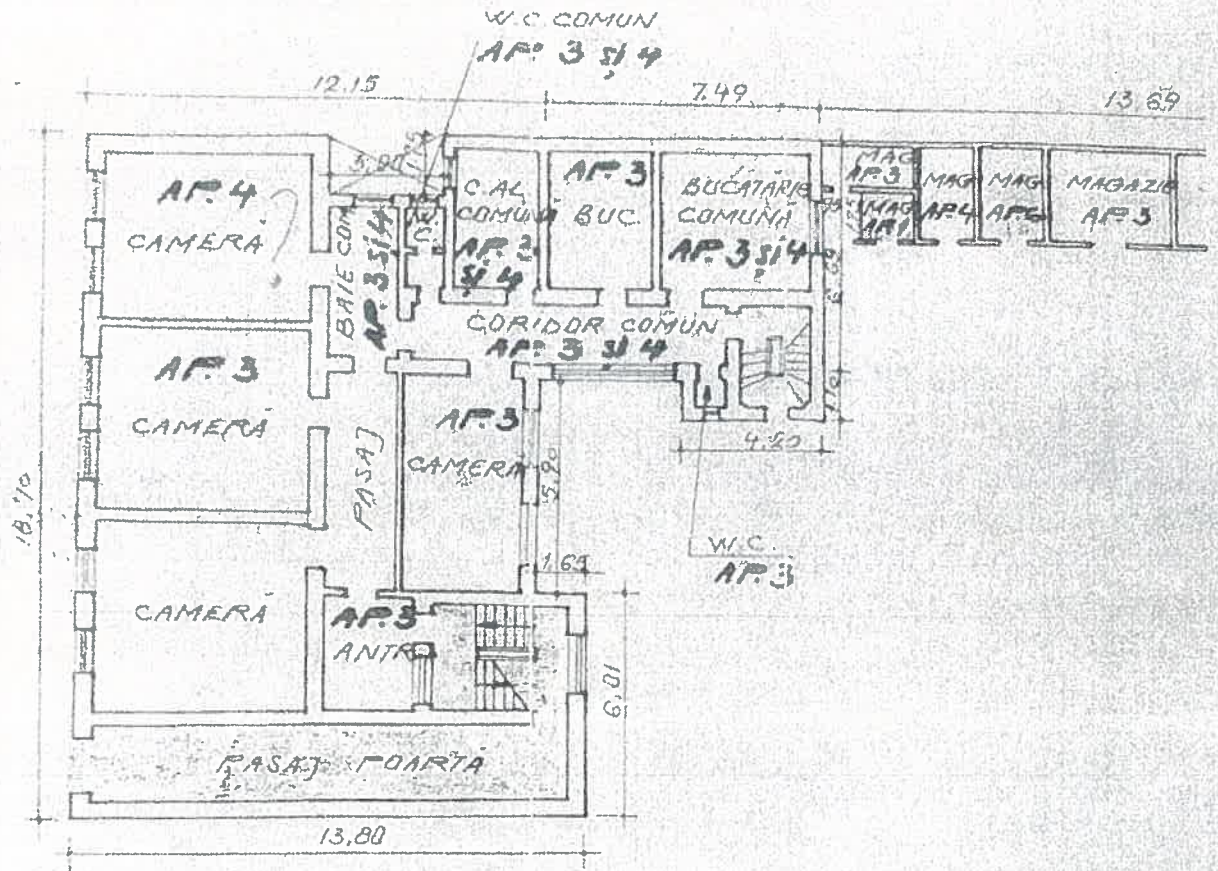 W.C. COMUN
AP. 3 și 4
12.15
7.49
13.69
AP. 4
CAMERĂ
BAIE COM
AP. 3 și 4
C. AL
COMUNĂ
și 4
AP. 3
BUC.
BUCATĂRIE
COMUNĂ
AP. 3 și 4
MAG
AP. 3
MAG
AP. 1
MAG
AP. 4
MAG
MAGAZIE
AP. 3
CORIDOR COMUN
AP. 3 și 4
AP. 3
CAMERĂ
AP. 3
CAMERA
PASAJ
5.90
4.20
18.70
W.C.
AP. 3
1.65
CAMERĂ
AP. 3
ANTR
6.01
PASAJ POARTĂ
13.80